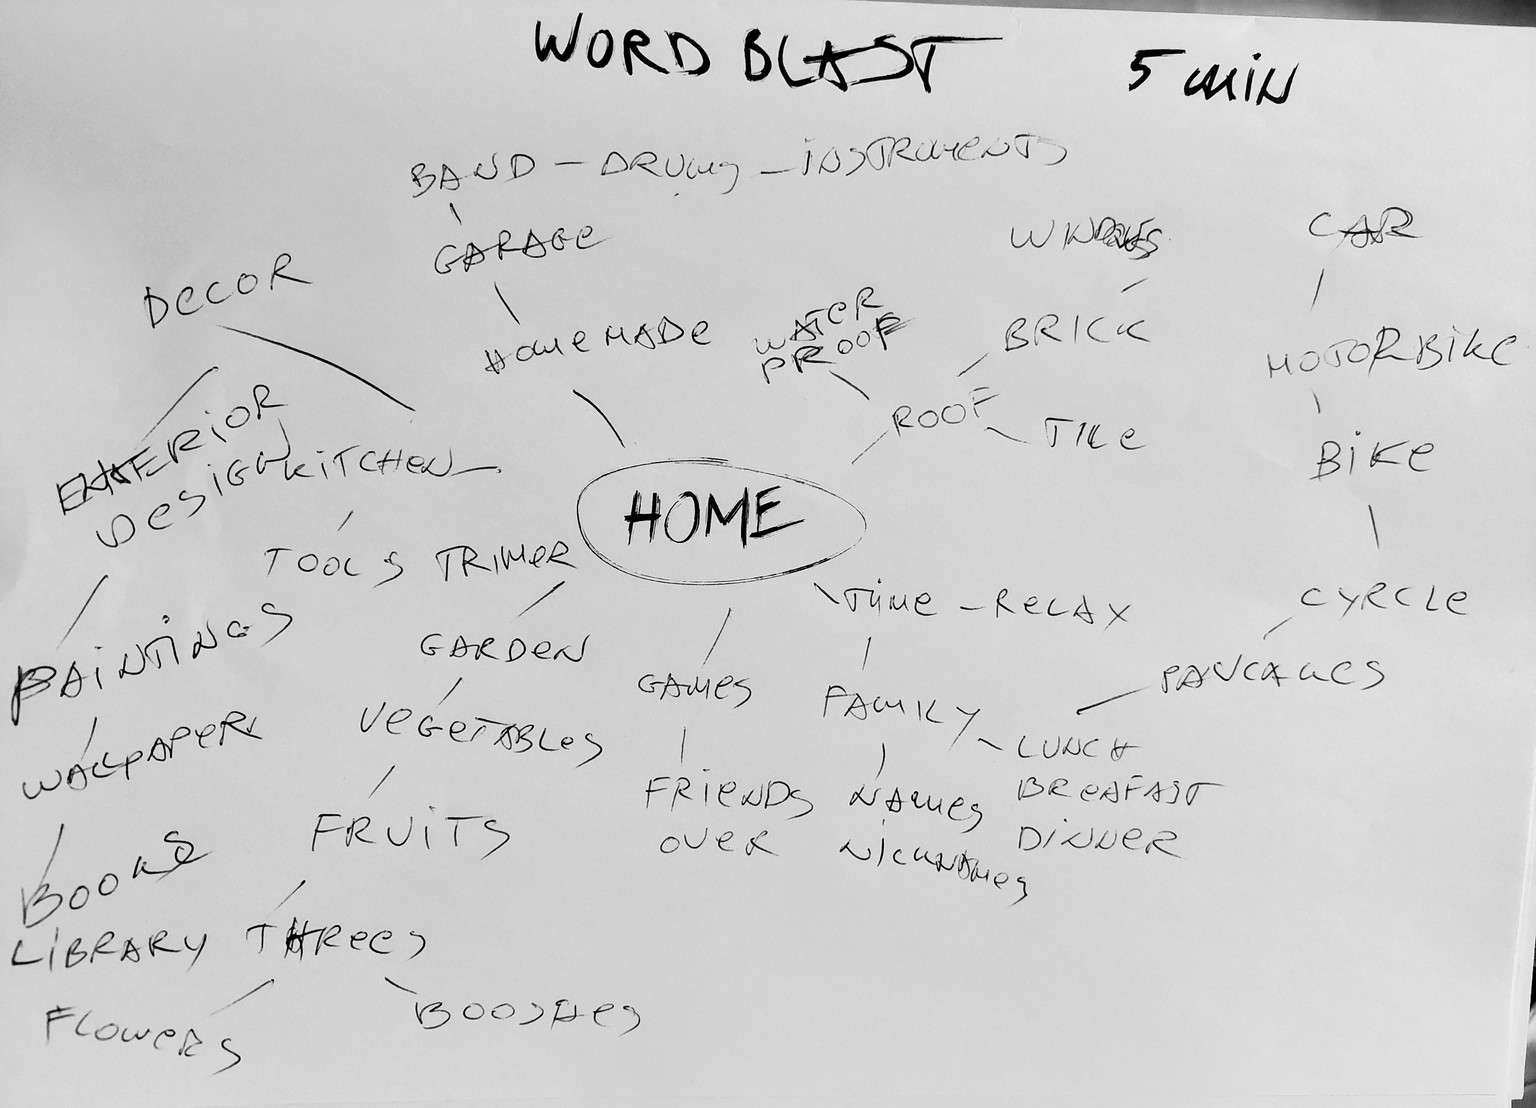 WORD BLAST 5 MIN
BAND - DRUMS - INSTRUMENTS
GARAGE
HOMEMADE
DECOR
EXTERIOR
DESIGN
KITCHEN
TOOLS TRIMER
PAINTINGS
WALLPAPER
BOOKS
LIBRARY
WATER
PROOF
ROOF
WINDOWS
BRICK
TILE
CAR
MOTORBIKE
BIKE
CYRCLE
PANCAKES
HOME
GARDEN
VEGETABLES
FRUITS
THREES
FLOWERS
BOOSHES
GAMES
FRIENDS
OVER
TIME - RELAX
FAMILY
NAMES
NICKNAMES
LUNCH
BREAFAST
DINNER